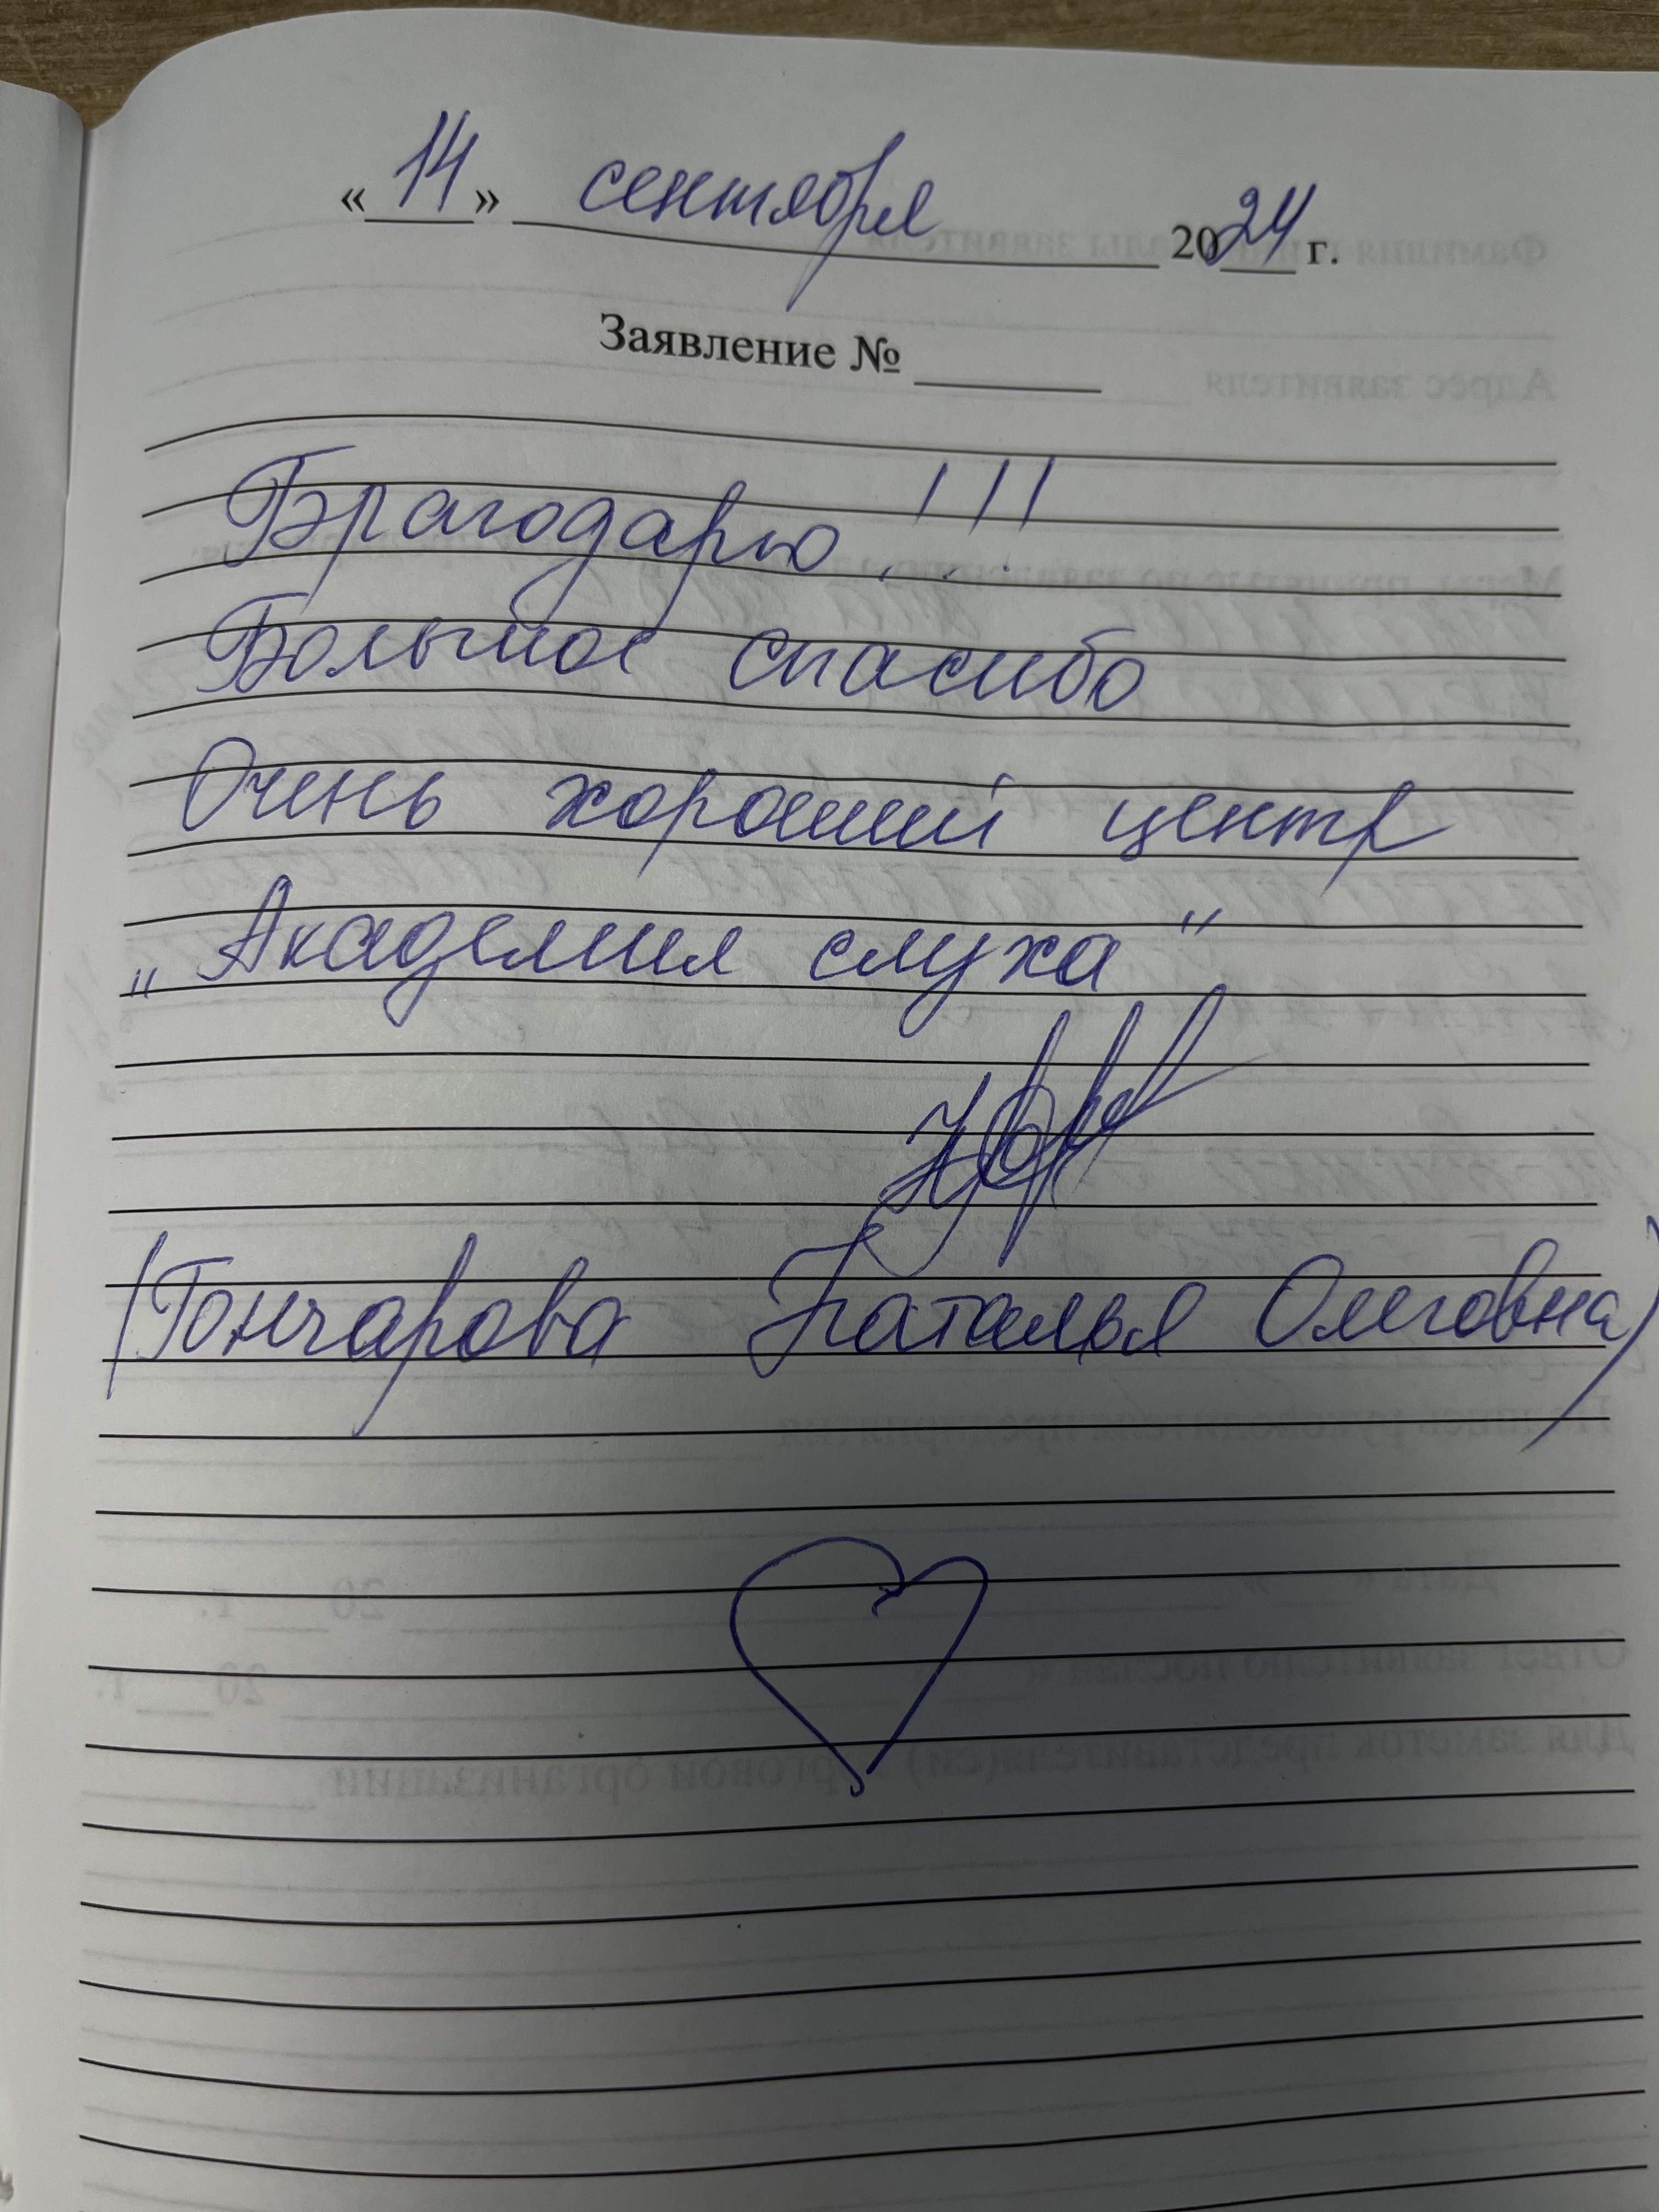 «14» сентября 2024 г.
Заявление № ____
Благодарю!!!
Большое спасибо
Очень хороший центр
„Академия слуха"
(Гончарова Наталья Олеговна)